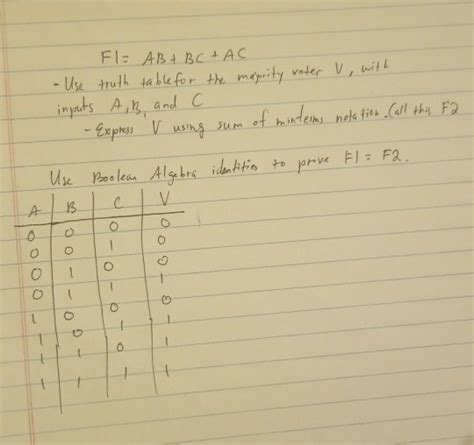 F1 = AB + BC + AC
- Use truth table for the majority voter V, with
inputs A, B, and C
- Express V using sum of minterms notation. Call this F2
Use Boolean Algebra identities to prove F1 = F2.
A B C V
0 0 0 0
0 0 1 0
0 1 0 0
0 1 1 1
1 0 0 0
1 0 1 1
1 1 0 1
1 1 1 1